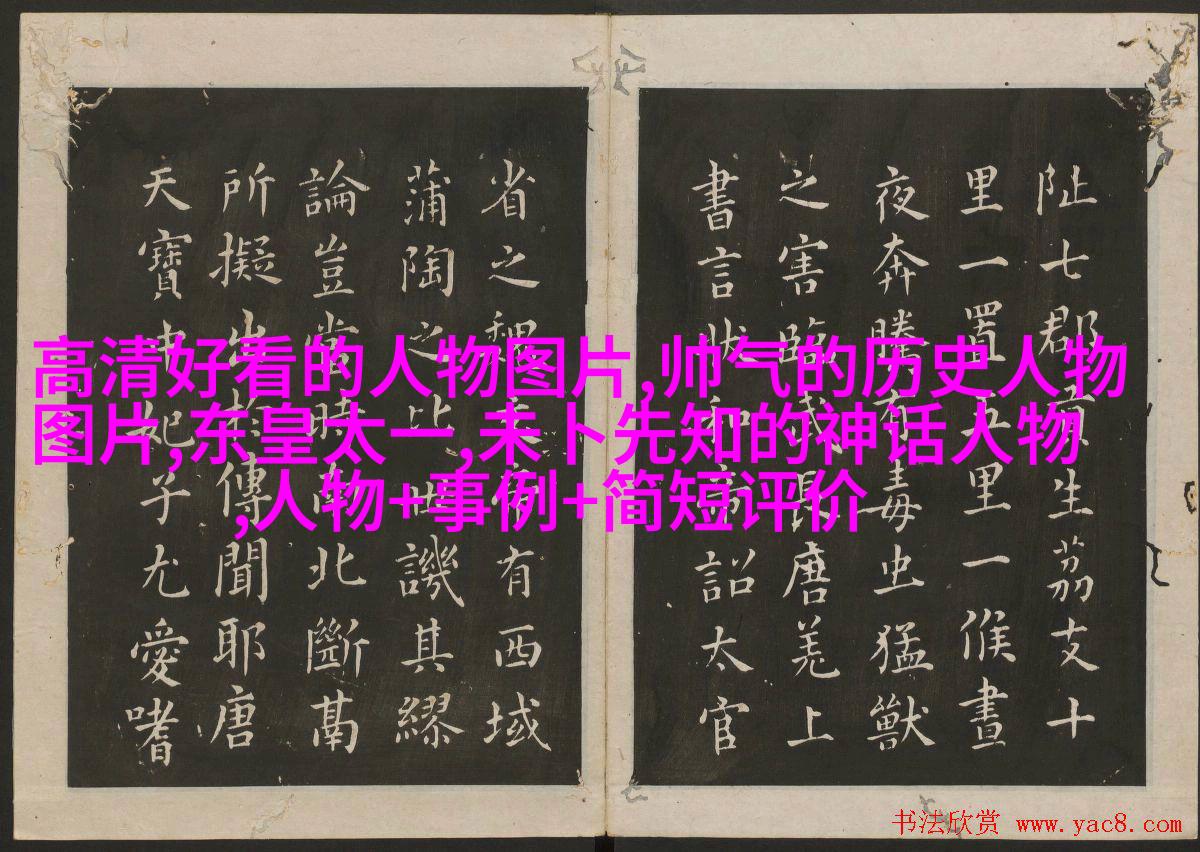 阯七郡貢生荔支十
里一置五里一候晝
夜奔騰有毒虫猛獸
之害臨武長唐羌上
書言狀和帝詔太官
省之魏文帝有西域
蒲陶之比世譏其繆
論豈當時南北斷鬲
所擬出於傳聞耶唐
天寶中妃子尤愛嗜
高清好看的人物图片,帅气的历史人物
图片,东皇太一,未卜先知的神话人物
,人物+事例+简短评价
书法欣赏 www.yac8.com